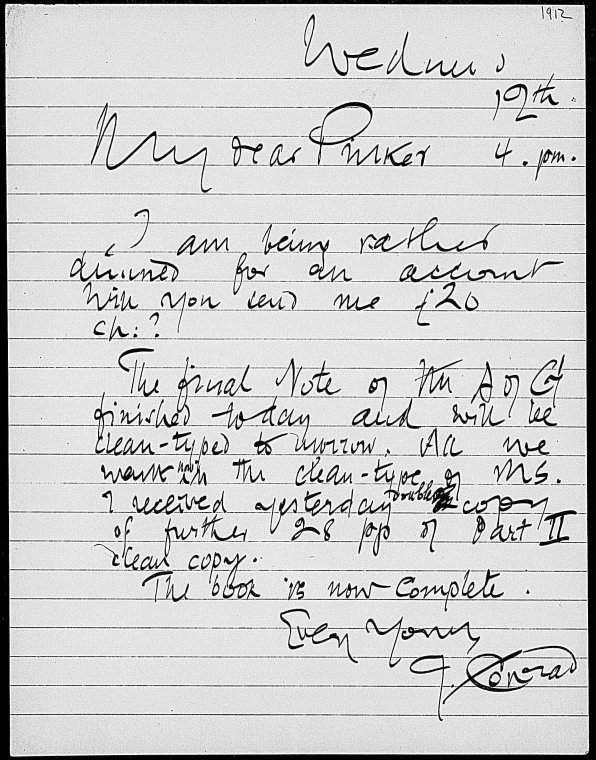 1912
Wednes
19th.
My dear Pinker 4. pm.
I am being rather
dunned for an account
Will you send me £20
ch:?
The final Note of the A of G
finished to-day and will be
clean-typed to morrow. All we
want now is the clean-type of MS.
I received yesterday double copy
of further 28 pp of Part II
clean copy.
The book is now complete.
Ever Yours
J. Conrad